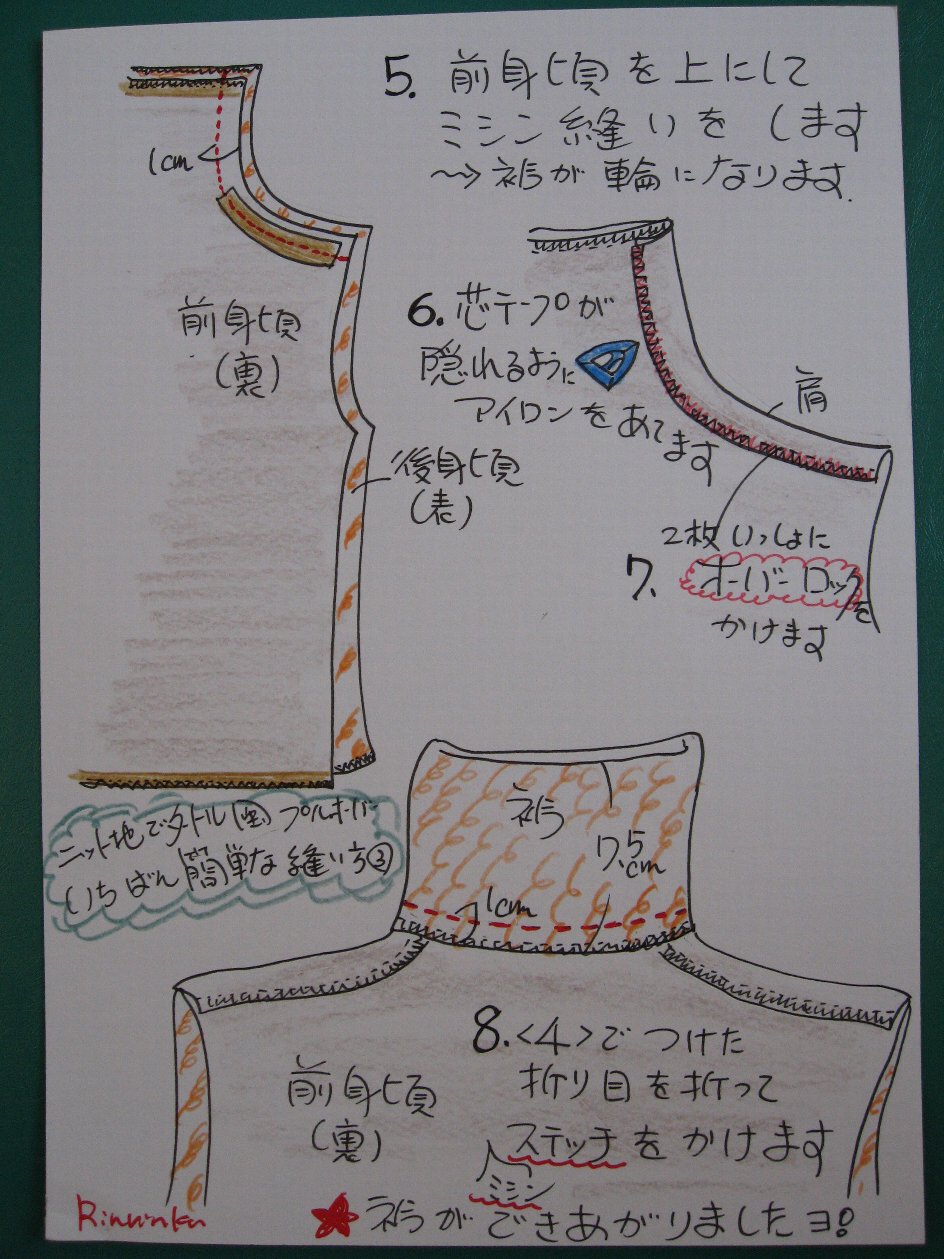 5. 前身頃を上にして
ミシン縫いをします
〜> 衿が輪になります
1cm
前身頃
(裏)
後身頃
(表)
6. 芯テープが
隠れるように
アイロンをあてます
肩
2枚いっしょに
7. オーバーロックを
かけます
ニット地でタートル(風)プルオーバー
いちばん簡単な縫い方③
衿
7.5
cm
1cm
8. <4>でつけた
折り目を折って
ステッチをかけます
ミシン
前身頃
(裏)
★ 衿ができあがりましたヨ!